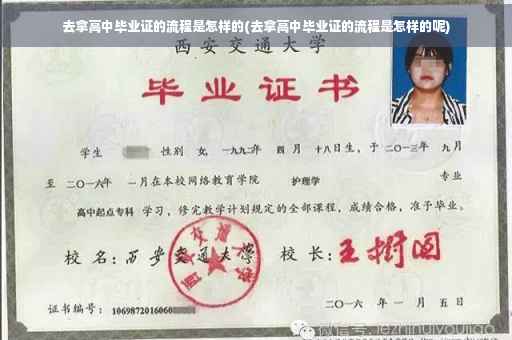 去拿高中毕业证的流程是怎样的(去拿高中毕业证的流程是怎样的呢)
西安交通大学
毕业证书
学生 性别 女, 一九九二年 四 月 十八日生, 于 二〇一三年 九月
至 二〇一六年 一月在本校网络教育学院 护理学 专业
高中起点专科 学习, 修完教学计划规定的全部课程, 成绩合格, 准予毕业。
校 名: 西安交通大学 校 长: 王树国
西安交通大学
证书编号: 1069872016060
二〇一六 年 一 月 五 日
微信号: jiezhihuiyoujiao